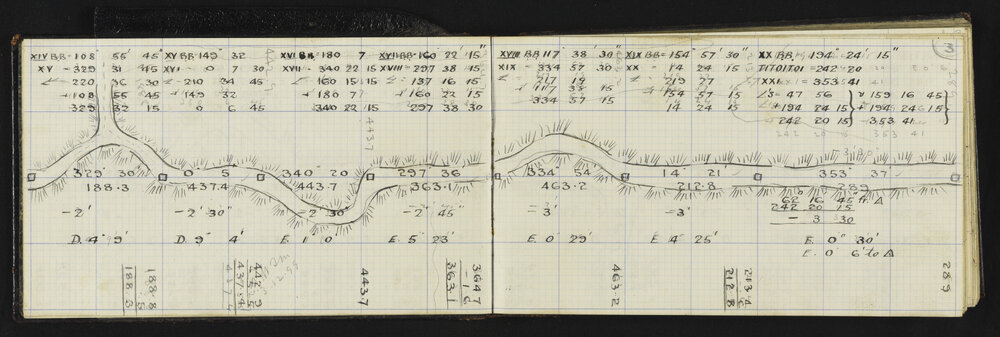 XIV BB = 108° 55' 45"
XV = 329 31 45
∠ 220 36 30
+ 108 55 45
329 32 15
XV BB 149° 32
XVI = 0 7 30
∠ = 210 34 45
+ 149 32
0 6 45
XVI BB = 180 7
XVII = 340 22 15
∠ 160 15 15
+ 180 7
340 22 15
XVII BB = 160 22 15"
XVIII = 297 38 15
∠ = 137 16 15
+ 160 22 15
297 38 30
XVIII BB 117° 38' 30"
XIX = 334 57 30
∠ = 217 19
+ 117 38 15
334 57 15
XIX BB = 154° 57' 30"
XX = 14 24 15
∠ 219 27
+ 154 57 15
14 24 15
XX BB, 194° 24' 15"
TITOITOI = 242 20
XXI = 353 41
∠'s = 47 56 & 159 16 45
∠ + 194 24 15 + 194 24 15
242 20 15 353 41
242 20 353 41
3
329° 30'
188.3
0° 5'
437.4
340 20
443.7
297 36
363.1
334° 54'
463.2
14° 21'
212.8
353° 37'
289
62 16 45" fr. Δ
242 20 15
- 3 30
- 2'
- 2' 30"
- 2' 30"
- 2' 45"
- 3'
- 3'
D. 4" 9'
D. 9" 4'
E. 1° 0'
E. 5° 23'
E. 0° 29'
E. 4° 25'
E. 0° 30'
E. 0° 6' to Δ
188.8
5
188.3
442.9
5.5
437.4
443.7
4437
364.7
- 1.6
363.1
463.2
213.4
6
212.8
289